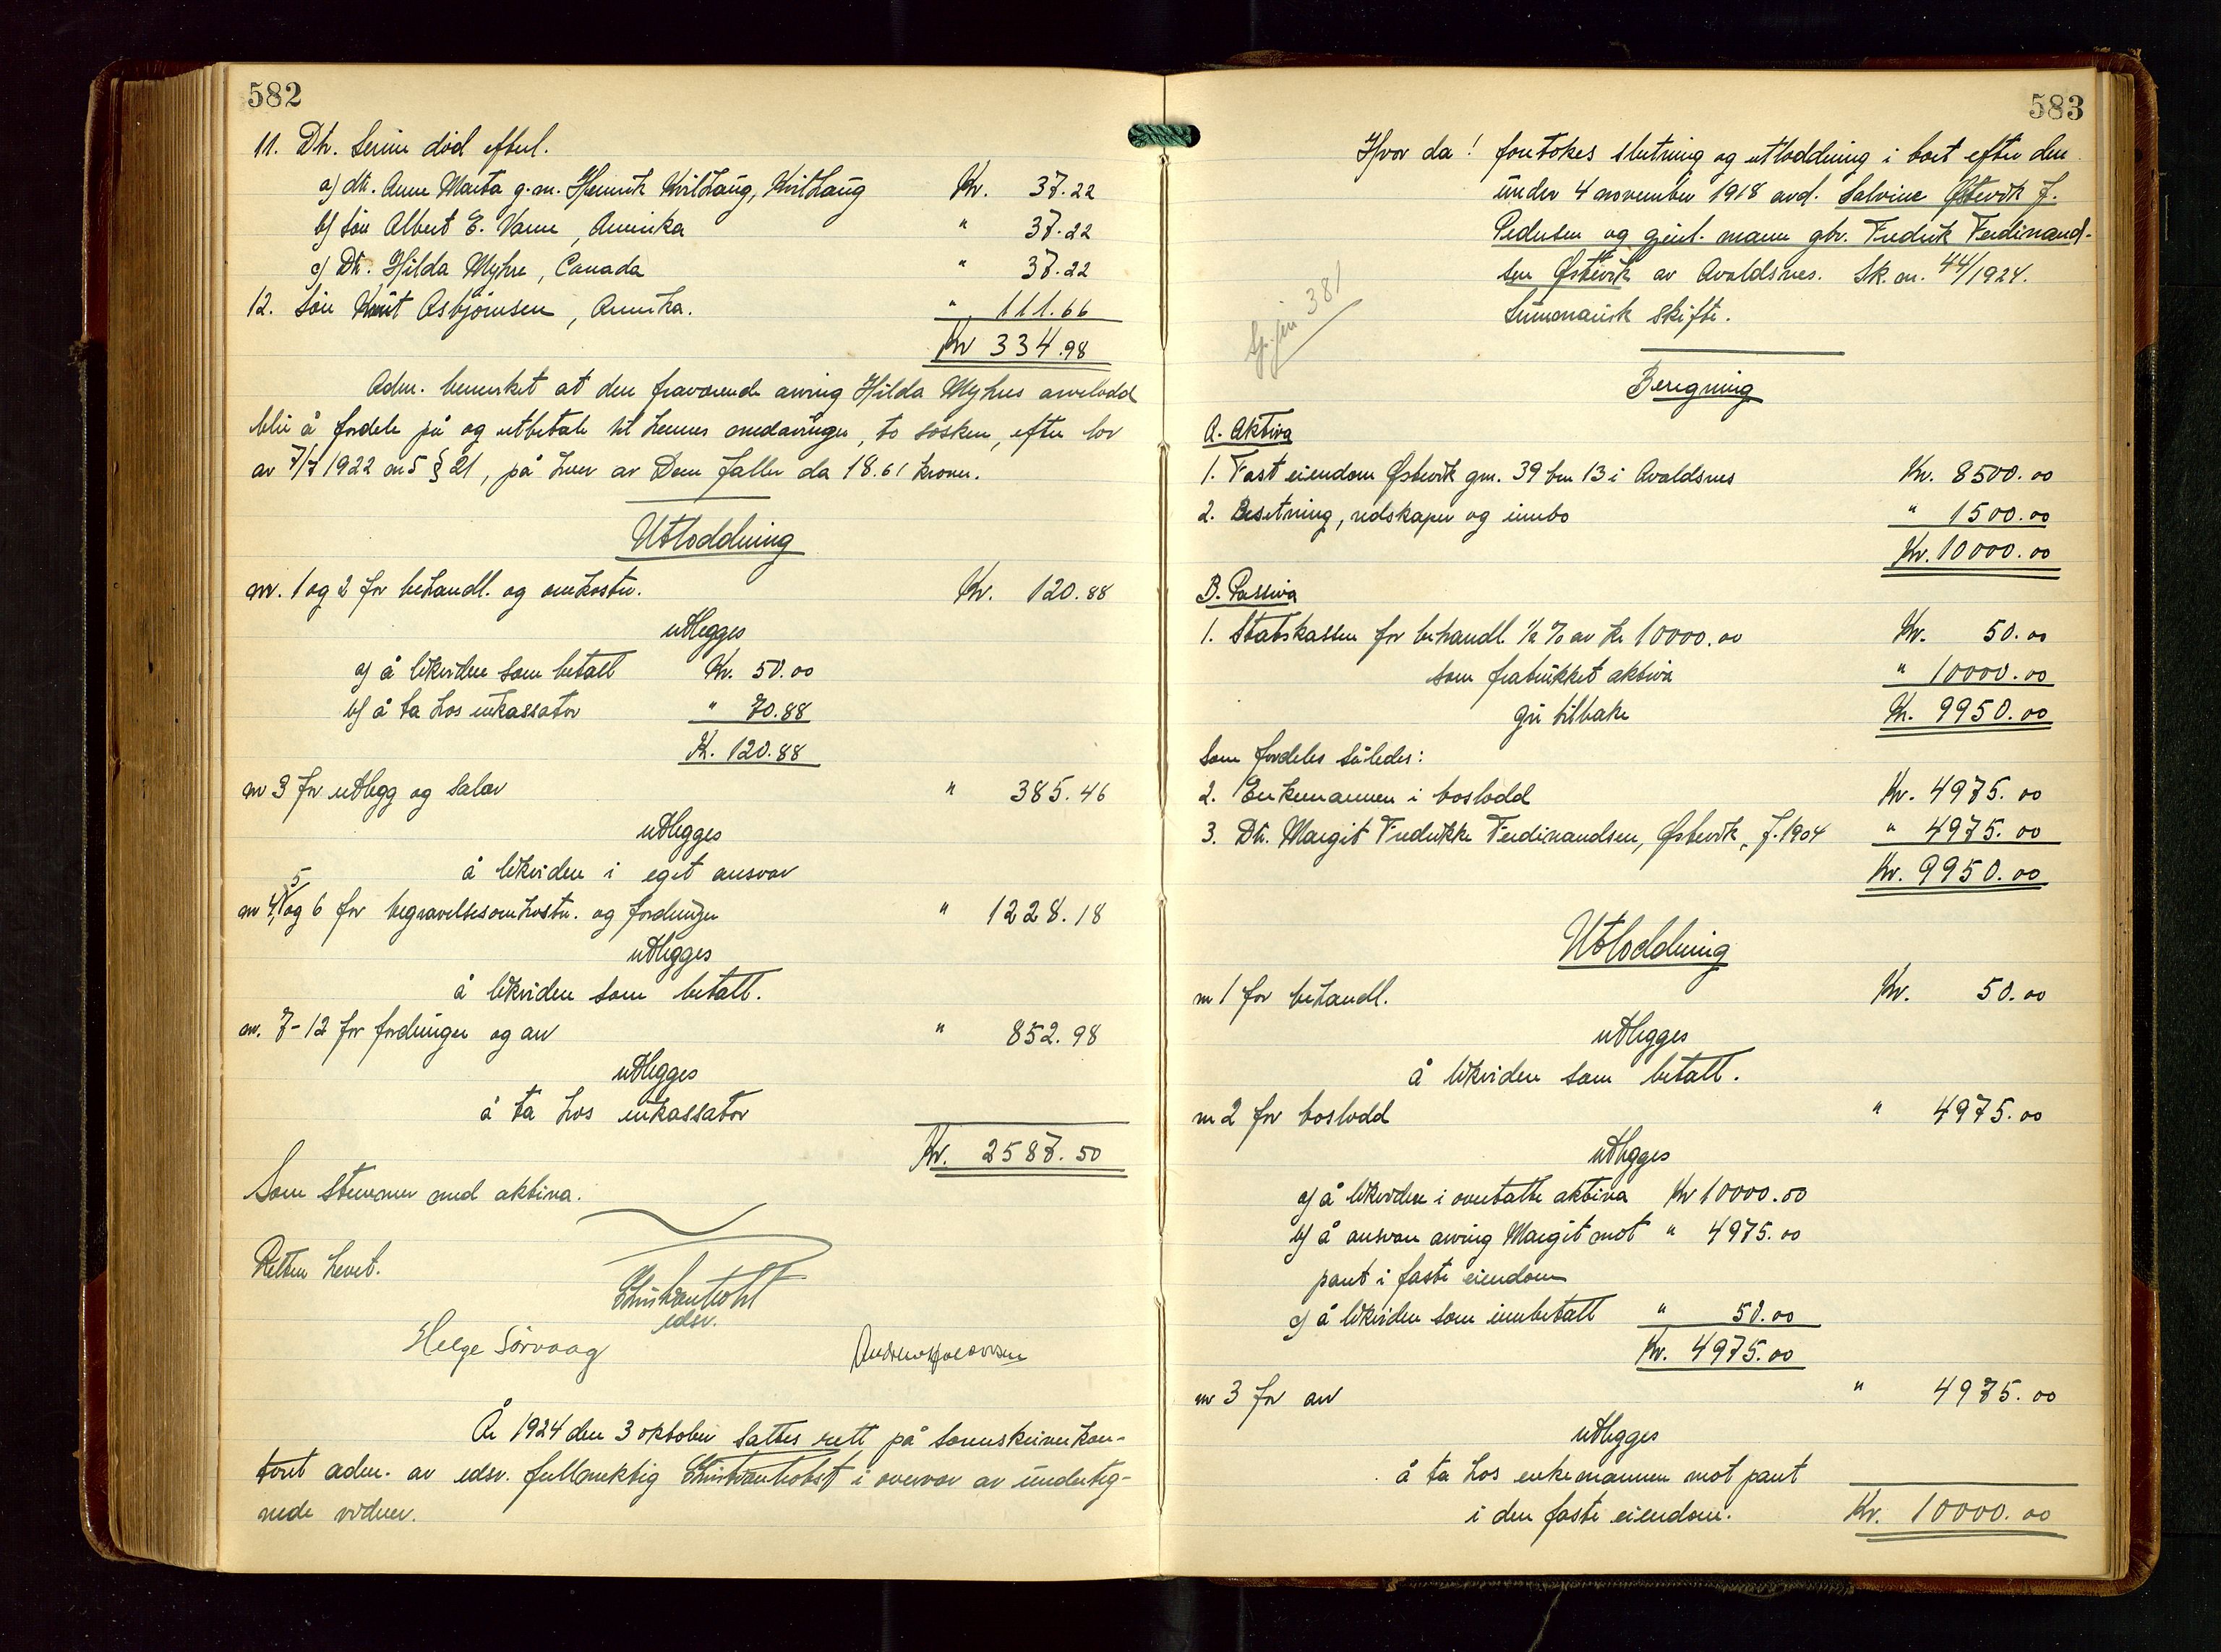 582
11. Dtr. Serine död efterl.
a) dtr. Anne Marta g.m. Henrik Kvilhaug, Kvilhaug Kr. 37.22
b) Sön Albert E. Varne, Amerika " 37.22
c) Dtr. Hilda Myhre, Canada " 37.22
12. Sön Knut Asbjörnsen, Amerika. " 111.66
Kr 334.98
Adm. bemerket at den fraværende arving Hilda Myhres arvelodd
blir å fordele på og utbetale til hennes medarvinger, to sösken, efter lov
av 7/7 1922 nr 5 § 21, på hver av Dem faller da 18.61 kroner.
Utloddning
nr. 1 og 2 for behandl. og omkostn. Kr. 120.88
utlegges
a) å likvidere som betalt Kr. 50.00
b) å ta hos inkassator " 70.88
Kr. 120.88
nr 3 for utlegg og salær " 385.46
utlegges
å likvidere i eget ansvar
5
nr 4, og 6 for begravelsesomkostn. og fordringer " 1228.18
utlegges
å likvidere som betalt.
nr. 7-12 for fordringer og arv " 852.98
utlegges
å ta hos inkassator
Kr. 2587.50
Som stemmer med aktiva.
Retten hevet.
edsv.
Helge Sörvaag
År 1924 den 3 oktober sattes rett på sorenskriverkon-
toret adm. av edsv. fullmektig i overvær av underteg-
nede vidner.
583
Hvor da! foretokes slutning og utloddning i boet efter den
under 4 november 1918 avd. Salvine Østevik f.
Pedersen og gjenl. mann gbr. Fredrik Ferdinand-
sen Østevik av Avaldsnes. Sk. nr. 44/1924.
Summarisk skifte.
381
Beregning
A. Aktiva
1. Fast eiendom Østevik gnr. 39 bnr 13 i Avaldsnes Kr. 8500.00
2. Besetning, redskaper og innbo " 1500.00
Kr. 10000.00
B. Passiva
1. Statskassen for behandl. ½ % av kr 10000.00 Kr. 50.00
som fratrukket aktiva " 10000.00
gir tilbake Kr. 9950.00
Som fordeles således:
2. Enkemannen i boslodd Kr. 4975.00
3. Dtr. Margit Fredrikke Ferdinandsen, Østevik, f. 1904 " 4975.00
Kr. 9950.00
Utloddning
nr 1 for behandl. Kr. 50.00
utlegges
å likvidere som betalt.
nr 2 for boslodd " 4975.00
utlegges
a) å likvidere i overtatte aktiva Kr 10000.00
b) å ansvare arving Margit mot " 4975.00
pant i faste eiendom
c) å likvidere som innbetalt " 50.00
Kr. 4975.00
nr 3 for arv " 4975.00
utlegges
å ta hos enkemannen mot pant
i den faste eiendom. Kr. 10000.00